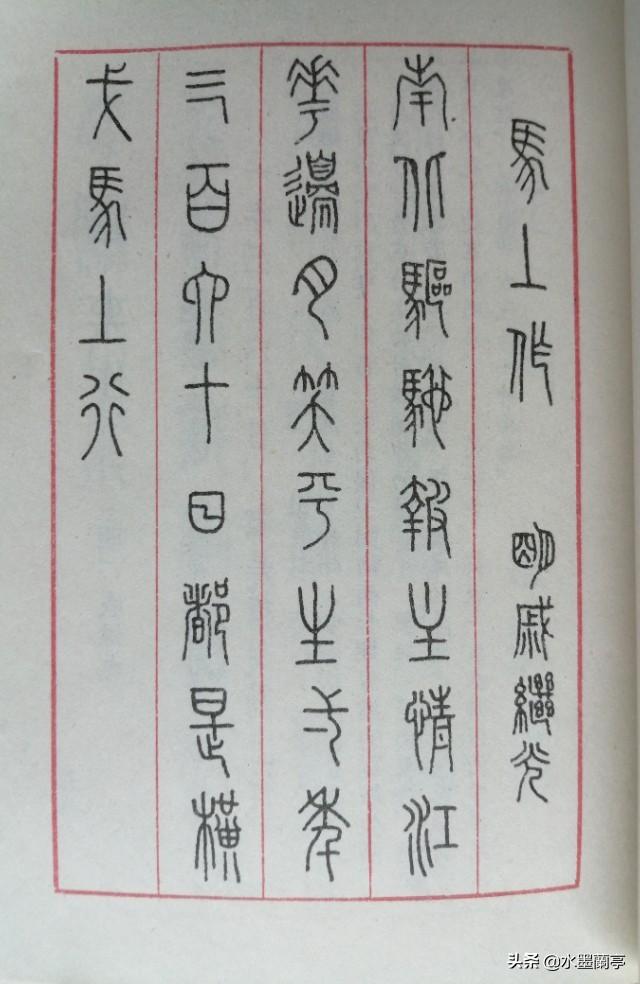 馬上作 明戚繼光
南北驅馳報主情江
花邊月笑平生一年
三百六十日都是橫
戈馬上行
头条 @水墨蘭亭